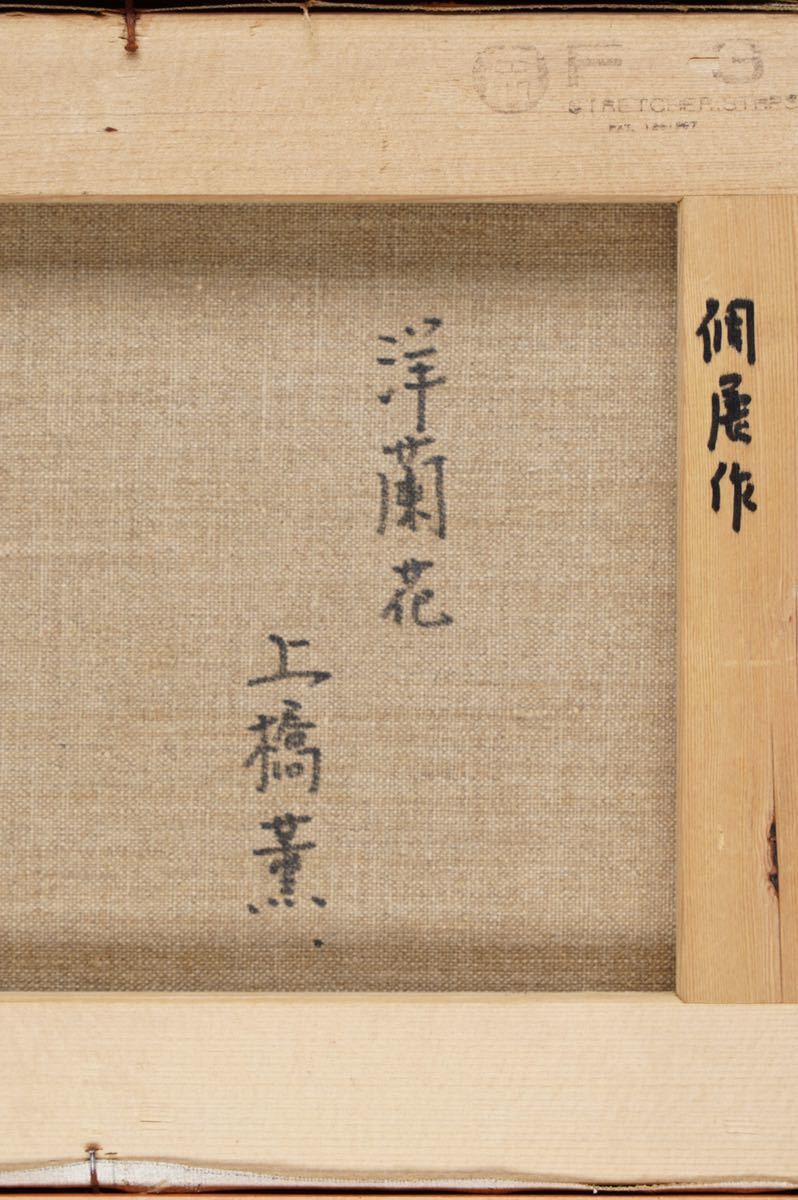 F 3
STRETCHER STRIPS
個展作
洋蘭花
上橋薫